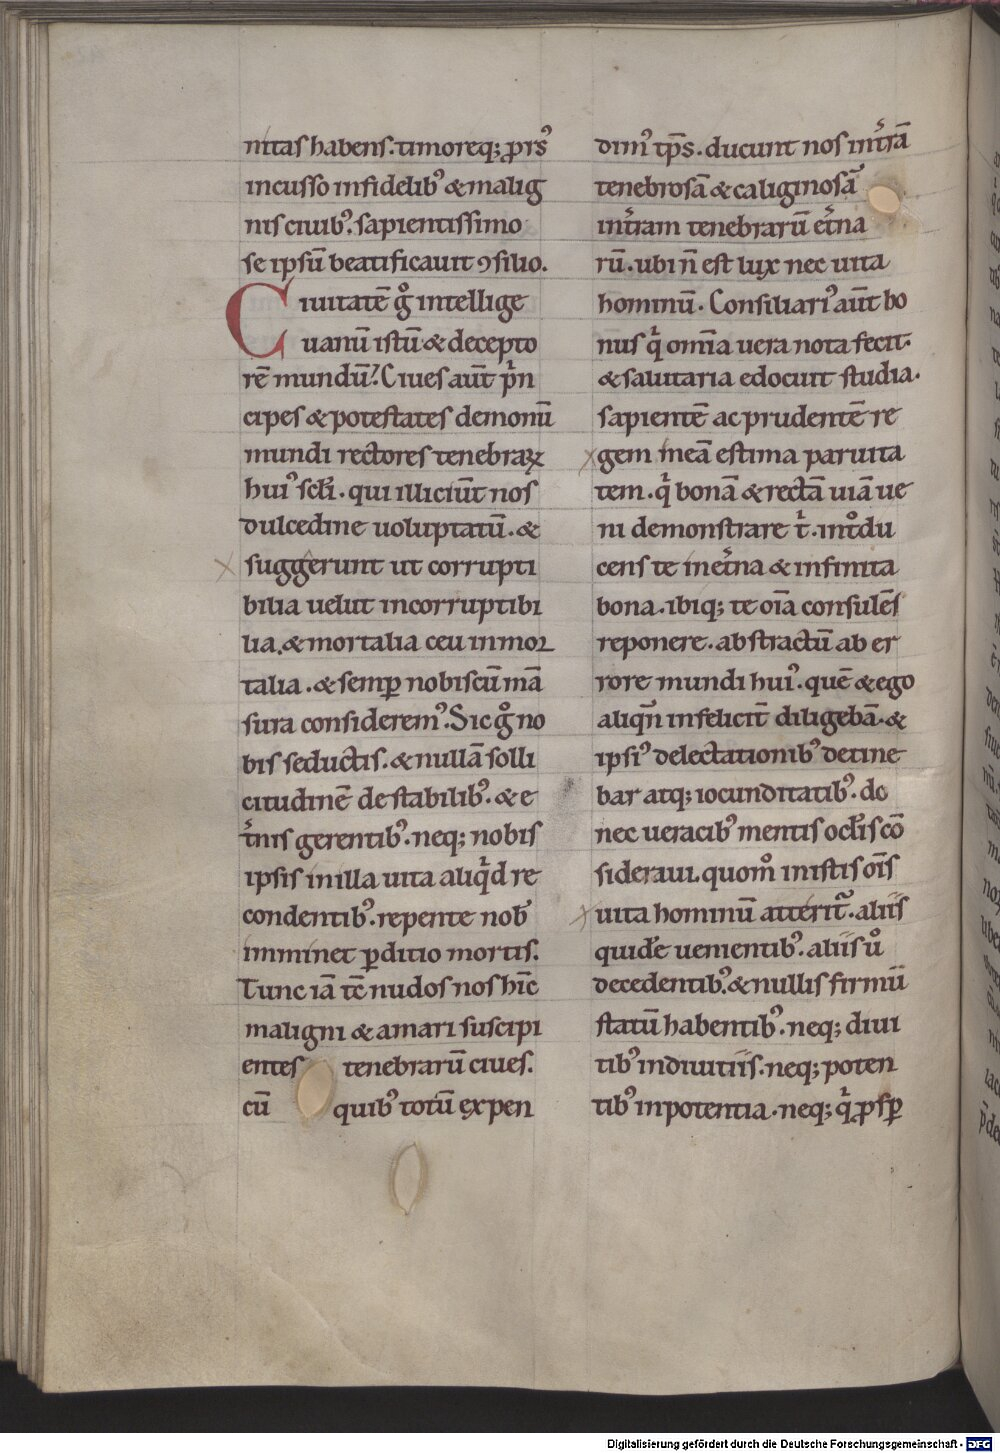 nitas habens. timoreq; ꝓrsꝰ
incusso infidelibꝰ & malig
nis ciuibꝰ. sapientissimo
se ipsū beatificauit ꝯsilio.
Ciuitatē gͦ intellige
uanū istū & decepto
rē mundū. Ciues aūt pͥn
cipes & potestates demonū
mundi rectores tenebraꝝ
huiꝰ scl̄i. qui illiciūt nos
dulcedine uoluptatū. &
suggerunt ut corrupti
bilia uelut incorruptibi
lia. & mortalia ceu inmor
talia. & semꝑ nobiscū mā
sura consideremꝰ. Sic gͦ no
bis seductis. & nullā solli
citudinē de stabilibꝰ. & e
t̄nis gerentibꝰ. neq; nobis
ipsis in illa uita aliqͥd re
condentibꝰ. repente nob̄
imminet ꝑditio mortis.
Tunc iā tē nudos nos hīc
maligni & amari suscipi
entes tenebrarū ciues.
cū quibꝰ totū expen
dimꝰ tp̄s. ducunt nos in t̄rā
tenebrosā & caliginosā
in t̄ram tenebrarū et̄na
rū. ubi n̄ est lux nec uita
hominū. Consiliariꝰ aūt bo
nus qͥ omīa uera nota fecit.
& salutaria edocuit studia.
sapientē ac prudentē re
gem meā estima paruita
tem. qͥ bonā & rectā uiā ue
ni demonstrare tͥ. intͦdu
cens te in et̄na & infinita
bona. ibiq; te oīa consulēs
reponere. abstractū ab er
rore mundi huiꝰ. quē & ego
aliqn̄ infelicit̄ diligebā. &
ipsiꝰ delectationibꝰ detine
bar atq; iocunditatibꝰ. do
nec ueracibꝰ mentis ocl̄is cō
sideraui. quomͦ in istis oīs
uita hominū atterit̄. aliis
quidē uenientibꝰ. aliis uͦ
decedentibꝰ. & nullis firmū
statū habentibꝰ. neq; diui
tibꝰ in diuitiis. neq; poten
tibꝰ in potentia. neq; qͥ ꝓsꝑ
Digitalisierung gefördert durch die Deutsche Forschungsgemeinschaft - DFG